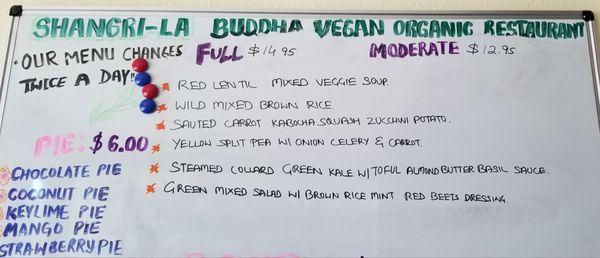 SHANGRI-LA BUDDHA VEGAN ORGANIC RESTAURANT
• OUR MENU CHANGES
TWICE A DAY!
FULL $14.95
MODERATE $12.95
RED LENTIL MIXED VEGGIE SOUP.
WILD MIXED BROWN RICE.
SAUTED CARROT KABOCHA SQUASH ZUCCHINI POTATO.
YELLOW SPLIT PEA W/ ONION CELERY & CARROT.
STEAMED COLLARD GREEN KALE W/ TOFUL ALMOND BUTTER BASIL SAUCE.
GREEN MIXED SALAD W/ BROWN RICE MINT RED BEETS DRESSING.
PIE: $6.00
CHOCOLATE PIE
COCONUT PIE
KEYLIME PIE
MANGO PIE
STRAWBERRY PIE